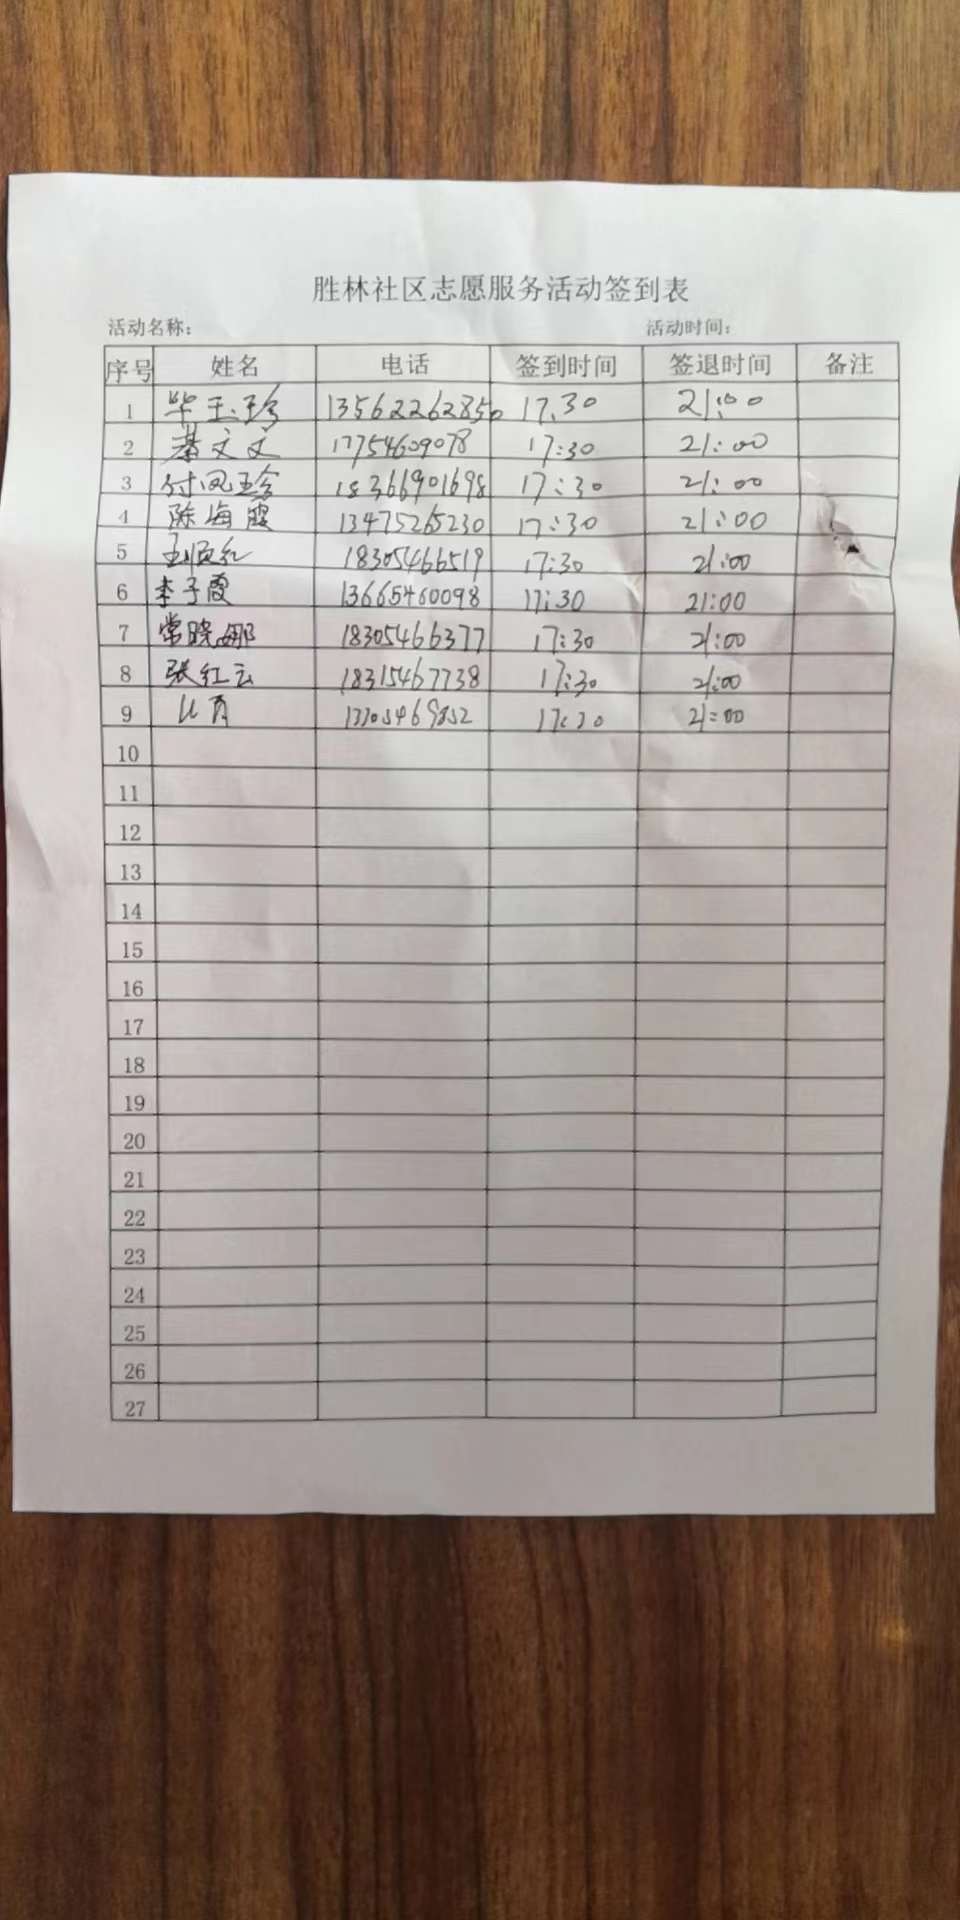 胜林社区志愿服务活动签到表
活动名称： 活动时间：
序号 姓名 电话 签到时间 签退时间 备注
1 毕玉珍 13562262850 17.30 21:00
2 綦文文 17754609078 17:30 21:00
3 付凤珍 18366901698 17:30 21:00
4 陈海霞 13475265230 17:30 21:00
5 18305466519 17:30 21:00
6 李子霞 13665460098 17:30 21:00
7 常晓娜 18305466377 17:30 21:00
8 张红云 18315467738 17:30 21:00
9 17:30 21:00
10
11
12
13
14
15
16
17
18
19
20
21
22
23
24
25
26
27